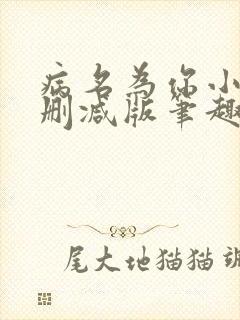 病名为你小
删减版笔趣
尾大地猫猫